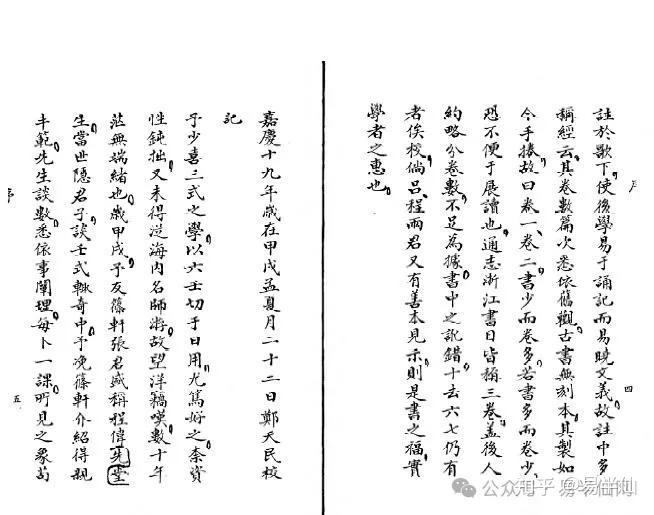 序
註於歌下使後學易于誦記而易曉文義故註中多
稱經云其卷數篇次悉依舊觀古書無刻本其製如
今手捲故曰卷一卷二書少而卷多若書多而卷少
恐不便于展讀也通志浙江書目皆稱三卷蓋後人
約略分卷數不足為據書中之訛錯十去六七仍有
者俟校倘呂程兩君又有善本見示則是書之福實
學者之惠也
四
嘉慶十九年歲在甲戌孟夏月二十二日鄭天民校
記
予少喜三式之學以六壬切于日用尤篤好之柰資
性鈍拙又未得從海内名師游故望洋竊嘆數十年
茫無端緒也歲甲戌予友篠軒張君盛稱程偉堂
生當世隱君子談壬式輒奇中予浼篠軒介紹得親
丰範先生談數悉依事闡理每卜一課所見之象茍
序
五
公众号·易学仙
知乎 @易学仙